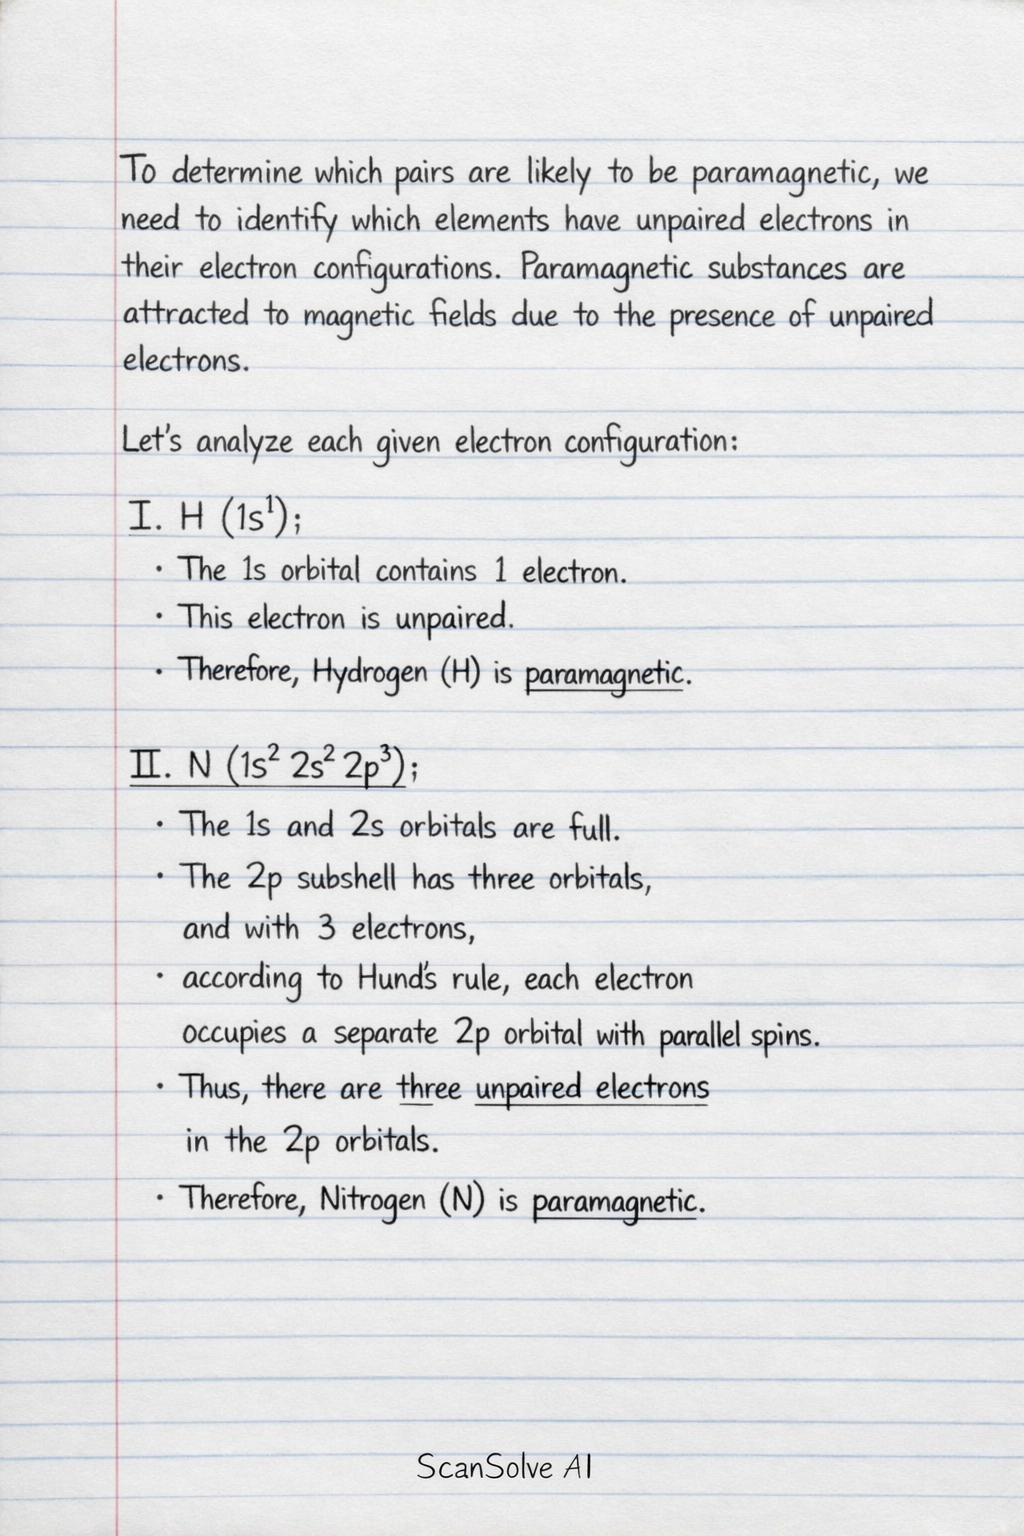 To determine which pairs are likely to be paramagnetic, we
need to identify which elements have unpaired electrons in
their electron configurations. Paramagnetic substances are
attracted to magnetic fields due to the presence of unpaired
electrons.
Let's analyze each given electron configuration:
I. H (1s¹);
· The 1s orbital contains 1 electron.
· This electron is unpaired.
· Therefore, Hydrogen (H) is paramagnetic.
II. N (1s² 2s² 2p³);
· The 1s and 2s orbitals are full.
· The 2p subshell has three orbitals,
and with 3 electrons,
· according to Hund's rule, each electron
occupies a separate 2p orbital with parallel spins.
· Thus, there are three unpaired electrons
in the 2p orbitals.
· Therefore, Nitrogen (N) is paramagnetic.
ScanSolve AI